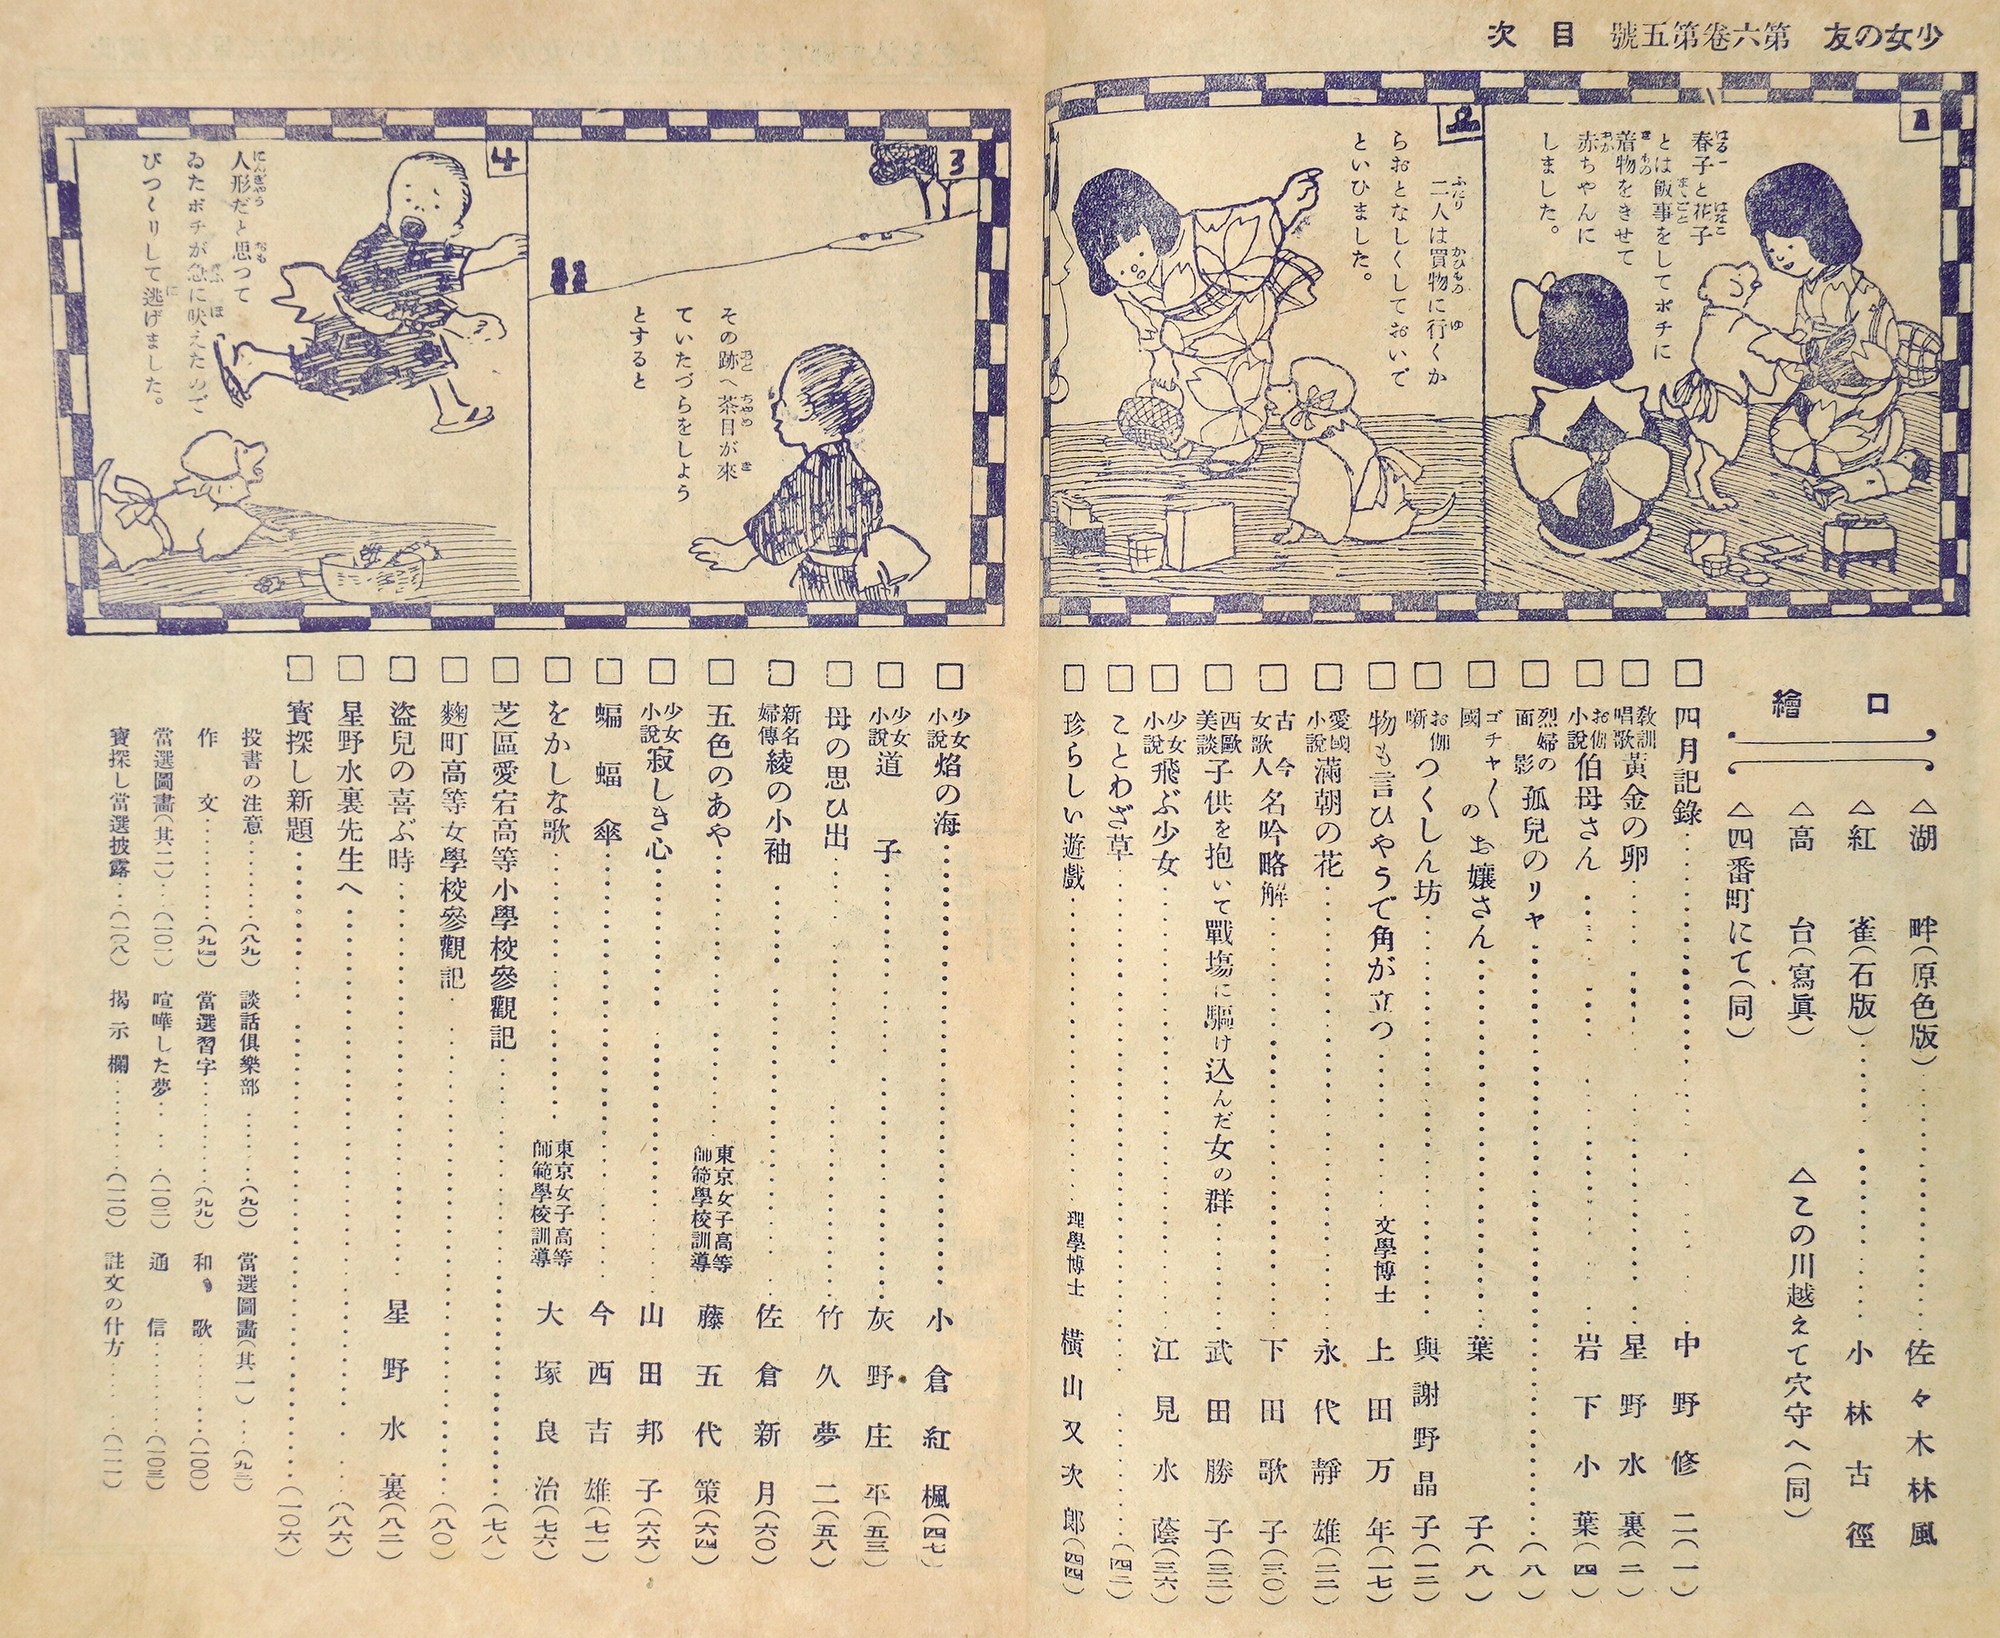 少女の友 第六卷第五號 目次
1
春子と花子
とは飯事をしてポチに
着物をきせて
赤ちやんに
しました。
2
二人は買物に行くか
らおとなしくしておいで
といひました。
3
その跡へ茶目が來
ていたづらをしよう
とすると
4
人形だと思つて
ゐたポチが急に吠えたので
びつくりして逃げました。
口繪
△湖畔(原色版)……佐々木林風
△紅雀(石版)……小林古徑
△高台(寫眞) △この川越えて穴守へ(同)
△四番町にて(同)
□四月記錄……中野修二(一)
□教訓唱歌 黃金の卵……星野水裏(二)
□お伽小說 伯母さん……岩下小葉(四)
□烈婦の面影 孤兒のリヤ……(八)
□ゴチャ〱國のお孃さん……葉子(八)
□お伽噺 つくしん坊……與謝野晶子(一二)
□物も言ひやうで角が立つ……文學博士 上田万年(一七)
□愛國小說 滿朝の花……永代靜雄(二二)
□古今女歌人 名吟略解……下田歌子(三〇)
□西歐美談 子供を抱いて戰塲に驅け込んだ女の群……武田勝子(三二)
□少女小說 飛ぶ少女……江見水蔭(三六)
□ことわざ草……(四二)
□珍らしい遊戲……理學博士 橫山又次郎(四四)
□少女小說 焰の海……小倉紅楓(四七)
□少女小說 道子……灰野庄平(五三)
□母の思ひ出……竹久夢二(五八)
□新名婦傳 綾の小袖……佐倉新月(六〇)
□五色のあや……東京女子高等師範學校訓導 藤五代策(六四)
□少女小說 寂しき心……山田邦子(六六)
□蝙蝠傘……今西吉雄(七一)
□をかしな歌……東京女子高等師範學校訓導 大塚良治(七六)
□芝區愛宕高等小學校參觀記……(七八)
□麴町高等女學校參觀記……(八〇)
□盜兒の喜ぶ時……星野水裏(八二)
□星野水裏先生へ……(八六)
□寳探し新題……(一〇六)
投書の注意……(八九) 談話俱樂部……(九〇) 當選圖畵(其一)……(九三)
作文……(九四) 當選習字……(九九) 和歌……(一〇〇)
當選圖畵(其二)……(一〇一) 喧嘩した夢……(一〇二) 通信……(一〇三)
寶探し當選披露……(一〇八) 揭示欄……(一一〇) 註文の仕方……(一一一)